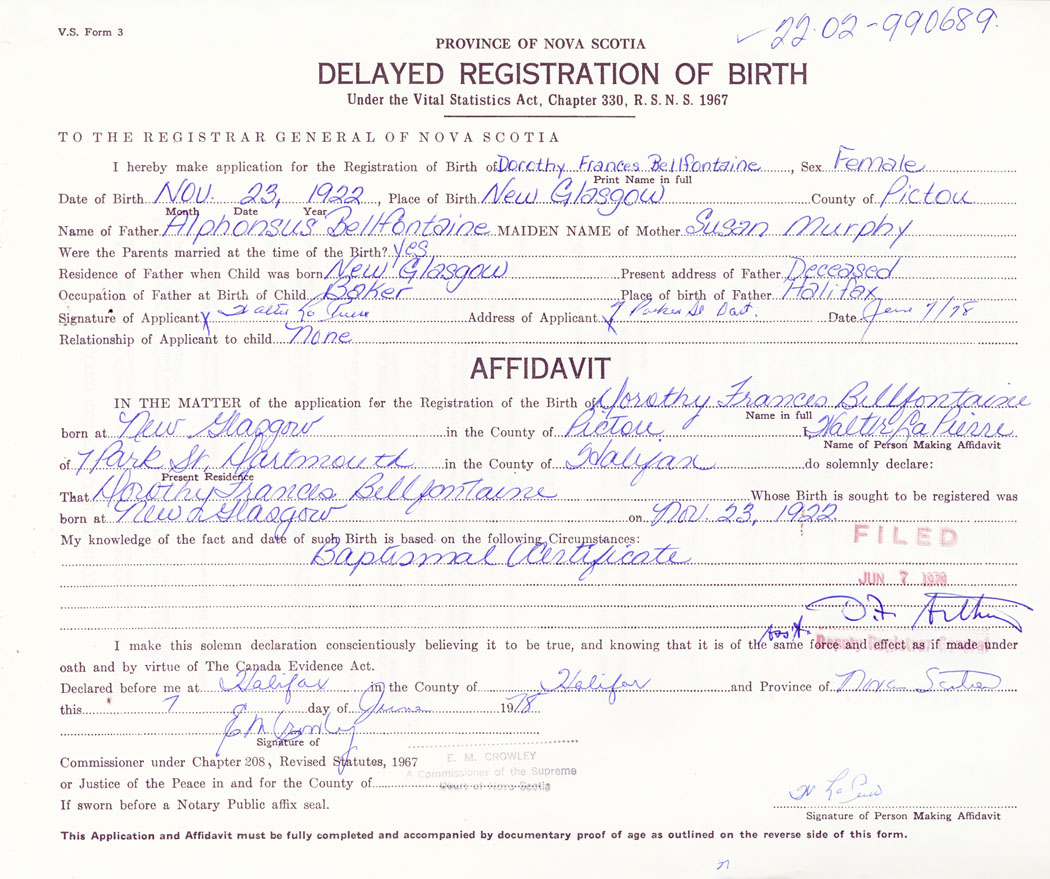 V.S. Form 3
22-02-990689.
PROVINCE OF NOVA SCOTIA
DELAYED REGISTRATION OF BIRTH
Under the Vital Statistics Act, Chapter 330, R. S. N. S. 1967
TO THE REGISTRAR GENERAL OF NOVA SCOTIA
I hereby make application for the Registration of Birth of Dorothy Frances Bellfontaine, Sex Female
Print Name in full
Date of Birth Nov. 23, 1922, Place of Birth New Glasgow County of Pictou
Month Date Year
Name of Father Alphonsus Bellfontaine MAIDEN NAME of Mother Susan Murphy
Were the Parents married at the time of the Birth? Yes
Residence of Father when Child was born New Glasgow Present address of Father Deceased
Occupation of Father at Birth of Child Baker Place of birth of Father Halifax
Signature of Applicant X Walter La Pierre Address of Applicant X 7 St Dart. Date June 7/78
Relationship of Applicant to child None
AFFIDAVIT
IN THE MATTER of the application for the Registration of the Birth of Dorothy Frances Bellfontaine
Name in full
born at New Glasgow in the County of Pictou I, Walter La Pierre
Name of Person Making Affidavit
of 7 Park St, Dartmouth in the County of Halifax do solemnly declare:
Present Residence
That Dorothy Frances Bellfontaine Whose Birth is sought to be registered was
born at New Glasgow on Nov. 23, 1922.
My knowledge of the fact and date of such Birth is based on the following Circumstances:
Baptismal Certificate
FILED
JUN 7 1978
D.F. Arthur
I make this solemn declaration conscientiously believing it to be true, and knowing that it is of the same force and effect as if made under
Ass't.
oath and by virtue of The Canada Evidence Act.
Declared before me at Halifax in the County of Halifax and Province of Nova Scotia
this 7 day of June 1978
E M Crowley
Signature of
Commissioner under Chapter 208, Revised Statutes, 1967
E. M. CROWLEY
A Commissioner of the Supreme
Court of Nova Scotia
or Justice of the Peace in and for the County of
If sworn before a Notary Public affix seal.
W La Pierre
Signature of Person Making Affidavit
This Application and Affidavit must be fully completed and accompanied by documentary proof of age as outlined on the reverse side of this form.